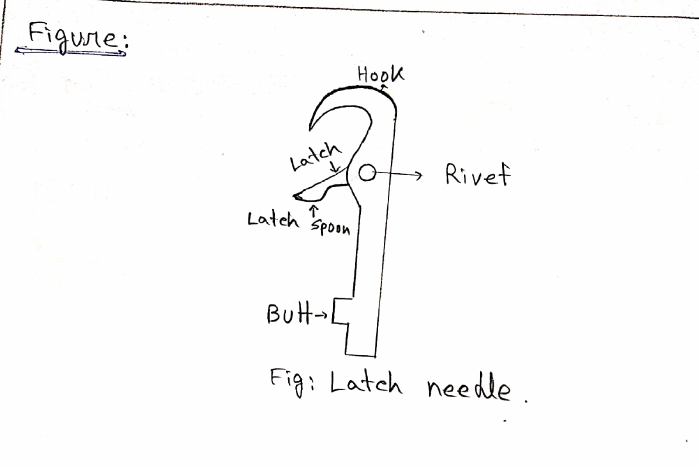 Figure:
Hook
Latch
Rivet
Latch spoon
Butt→
Fig: Latch needle.